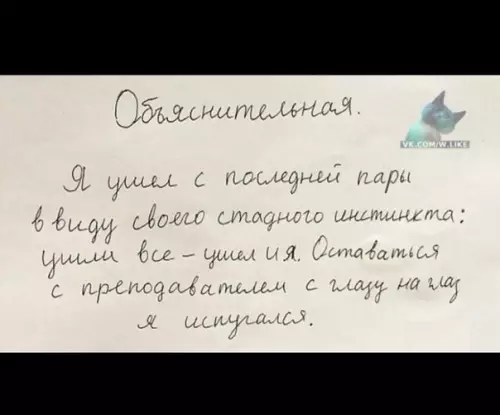 Объяснительная.
VK.COM/W.LIKE
Я ушел с последней пары
в виду своего стадного инстинкта:
ушли все – ушел и я. Оставаться
с преподавателем с глазу на глаз
я испугался.